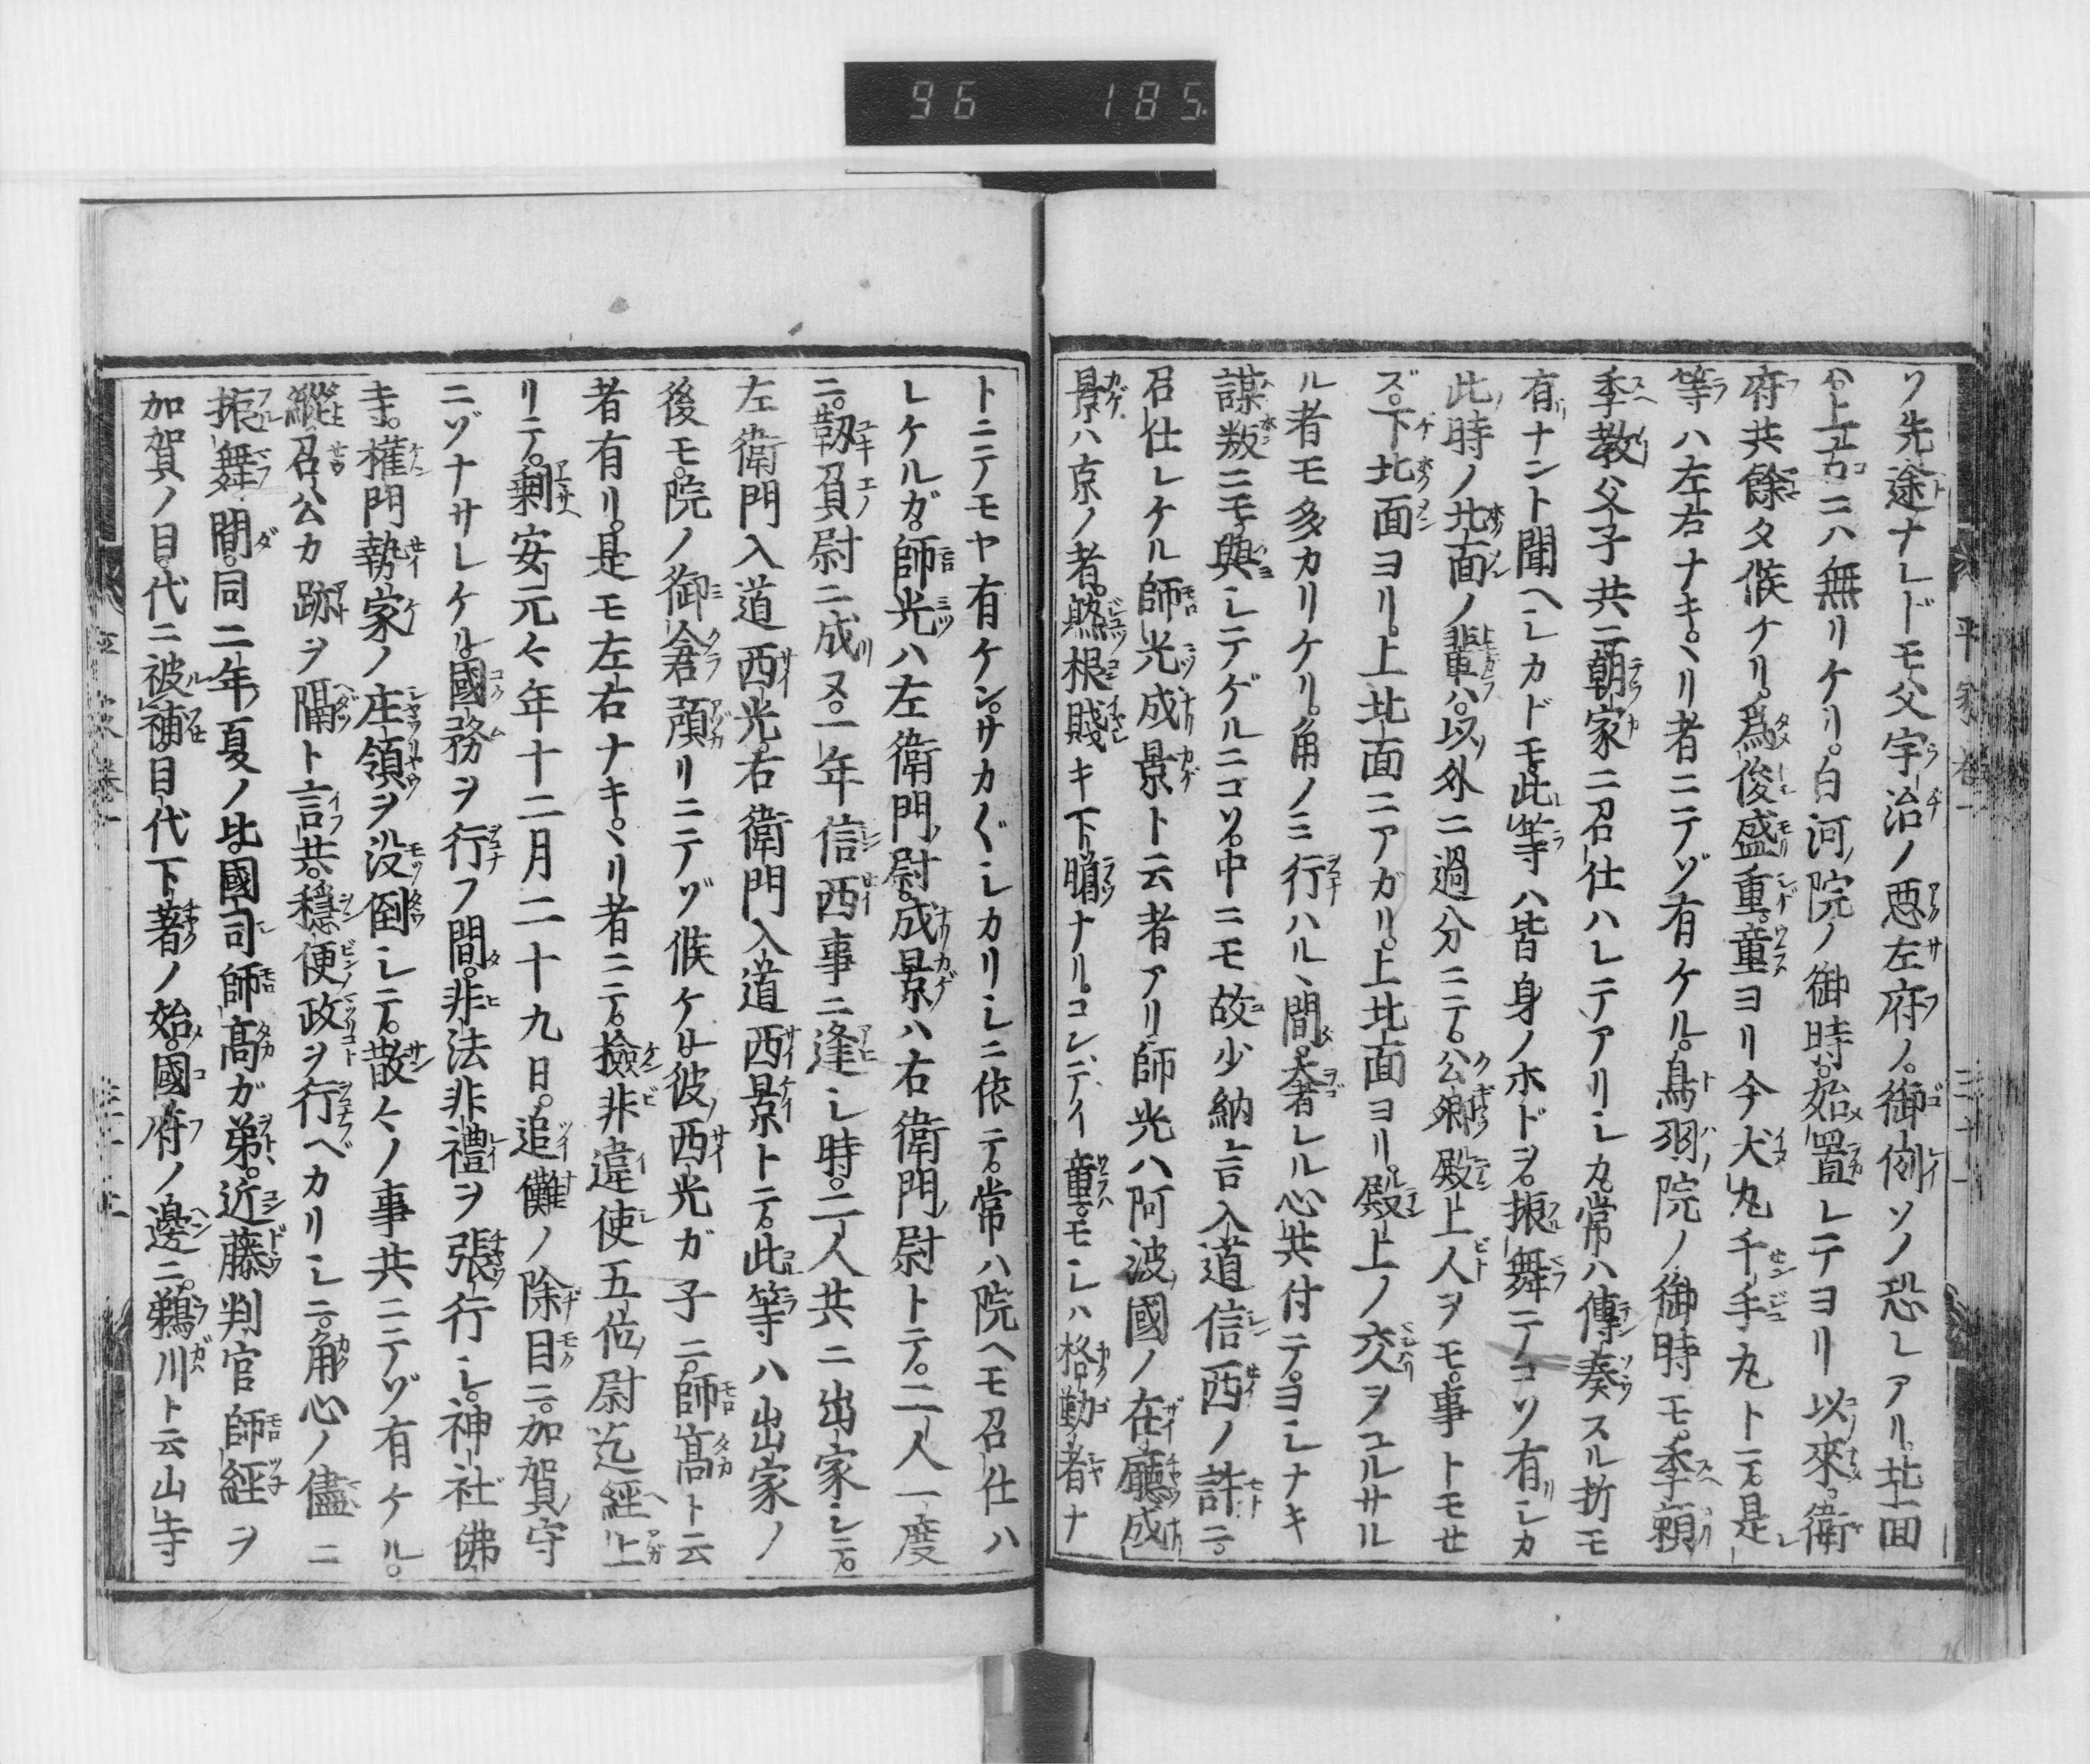 96 185
ソ先途ナレドモ父宇治ノ悪左府ノ。御例ソノ恐レアリ。北面
ハ。上古ニハ無リケリ。白河ノ院ノ御時。始置レテヨリ以來。衛
府共餘タ候ケリ。爲俊盛重。童ヨリ今犬丸千手丸トテ。是
等ハ左右ナキヽリ者ニテゾ有ケル。鳥羽ノ院ノ御時モ。季頼
季教父子共ニ朝家ニ召仕ハレテアリシカ。常ハ傳奏スル折モ
有ナント聞ヘシカドモ。此等ハ皆身ノホドヲ。振舞テコソ有シカ
此時ノ北面ノ輩ハ。以外ニ過分ニテ。公卿殿上人ヲモ。事トモせ
ズ。下北面ヨリ。上北面ニアガリ。上北面ヨリ。殿上ノ交ヲユルサル
ル者モ多カリケリ。角ノミ行ハルヽ間。奢レル心共付テ。ヨシナキ
謀叛ニモ。與シテゲルニコソ。中ニモ故少納言入道信西ノ許ニ。
召仕レケル師光成景ト云者アリ。師光ハ阿波ノ國ノ在廳成
景ハ京ノ者。熟根賤キ下臈ナリ。コンデイ童モシハ格勤者ナ
平家巻一 三十一
トニテモヤ有ケン。サカ〲シカリシニ依テ。常ハ院ヘモ召仕ハ
レケルガ。師光ハ左衛門ノ尉。成景ハ右衛門ノ尉トテ。二人一度
ニ。靱負尉ニ成ヌ。一年信西事ニ逢シ時。二人共ニ出家シテ。
左衛門入道西光。右衛門入道西景トテ。此等ハ出家ノ
後モ。院ノ御倉預リニテゾ候ケル。彼ノ西光ガ子ニ。師髙ト云
者有リ。是モ左右ナキ。ヽリ者ニテ。撿非違使五位ノ尉迄經上
リテ。剰安元々年十二月二十九日。追儺ノ除目ニ。加賀ノ守
ニゾナサレケル。國務ヲ行フ間。非法非禮ヲ張行シ。神社佛
寺。權門勢家ノ庄領ヲ没倒シテ。散々ノ事共ニテゾ有ケル。
縱召公カ跡ヲ隔ト言共。穩便政ヲ行ベカリシニ。角心ノ儘ニ
振舞間。同二年夏ノ比。國司師髙ガ弟。近藤判官師經ヲ
加賀ノ目代ニ被補。目代下著ノ始。國府ノ邊ニ。鵜川ト云山寺